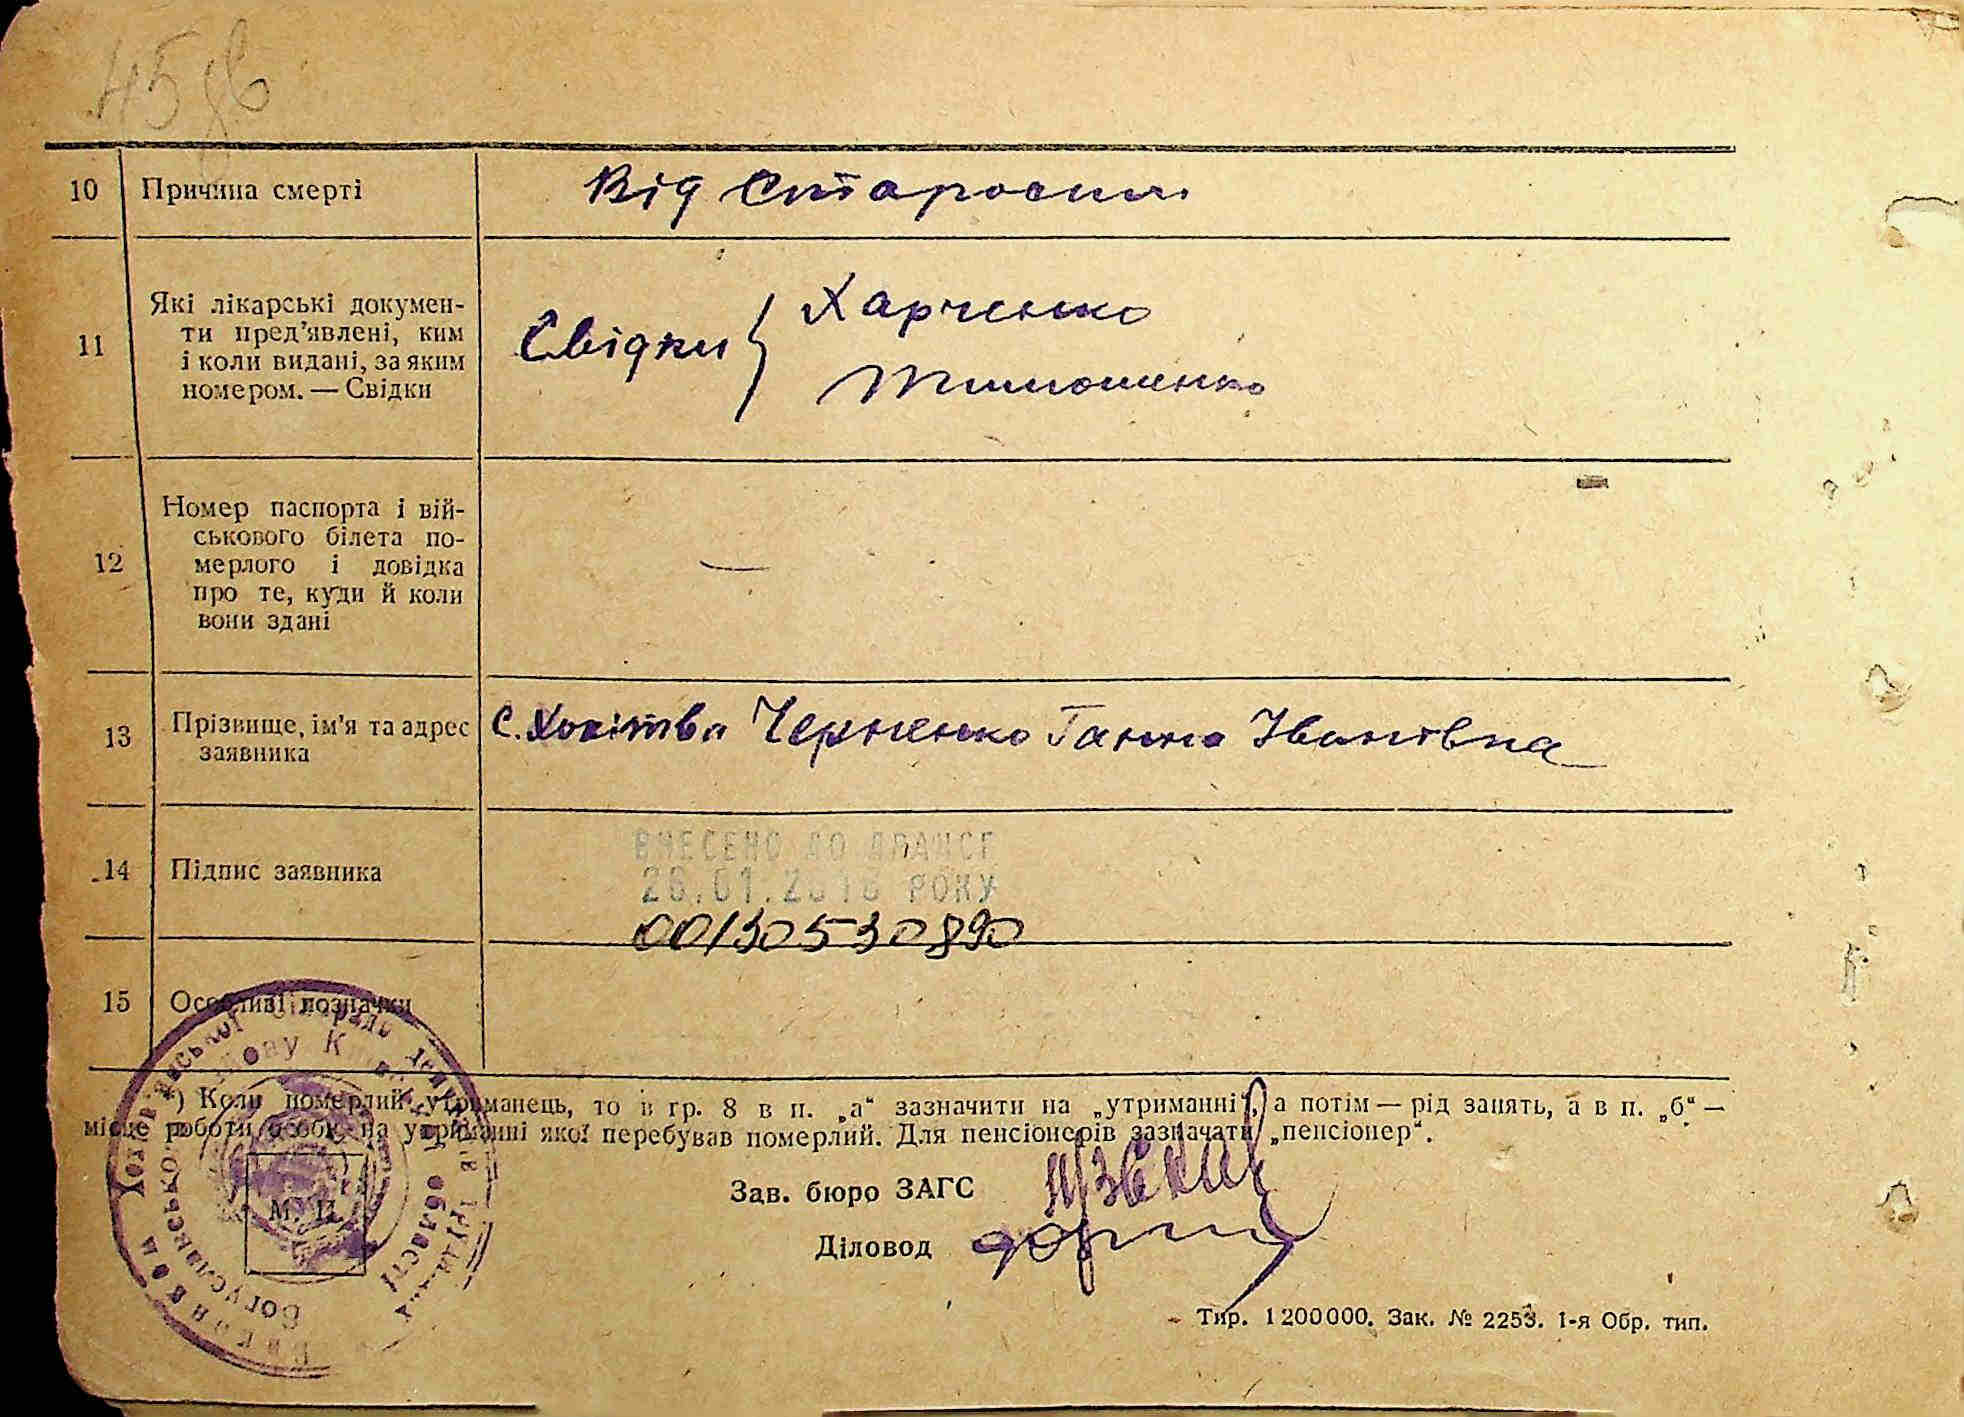 45 зв
10 Причина смерті Від Старости
11 Які лікарські докумен-
ти пред’явлені, ким
і коли видані, за яким
номером. — Свідки
Свідки } Харченко
Тимошенко
12 Номер паспорта і вій-
ськового білета по-
мерлого і довідка
про те, куди й коли
вони здані
—
13 Прізвище, ім’я та адрес
заявника
с. Хохітва Черненко Ганна Іванівна
14 Підпис заявника
ВНЕСЕНО ДО ДРАЦСГ
26.01.2016 РОКУ
00130530890
15 Особливі позначки
*) Коли померлий утриманець, то в гр. 8 в п. „а“ зазначити на „утриманні“, а потім — рід занять, а в п. „б“ —
місце роботи особи, на утриманні якої перебував померлий. Для пенсіонерів зазначати „пенсіонер“.
М. П.
Зав. бюро ЗАГС
Діловод
Богуславського району Київської області
Тир. 1200000. Зак. № 2253. 1-я Обр. тип.